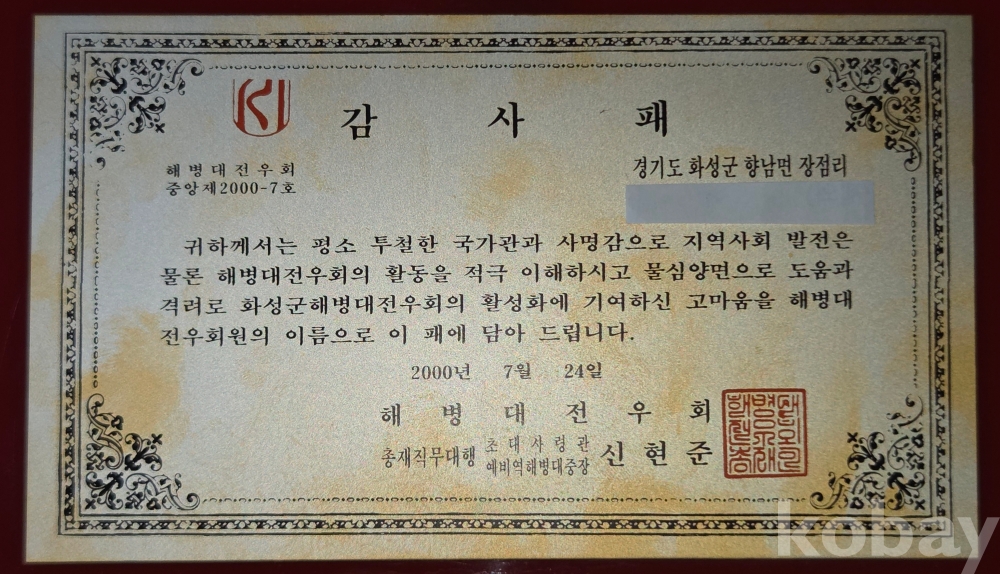 감 사 패
해병대전우회
중앙제2000-7호
경기도 화성군 향남면 장점리
귀하께서는 평소 투철한 국가관과 사명감으로 지역사회 발전은
물론 해병대전우회의 활동을 적극 이해하시고 물심양면으로 도움과
격려로 화성군해병대전우회의 활성화에 기여하신 고마움을 해병대
전우회원의 이름으로 이 패에 담아 드립니다.
2000년 7월 24일
해 병 대 전 우 회
총재직무대행 초대사령관 신현준
예비역해병대중장
kobay